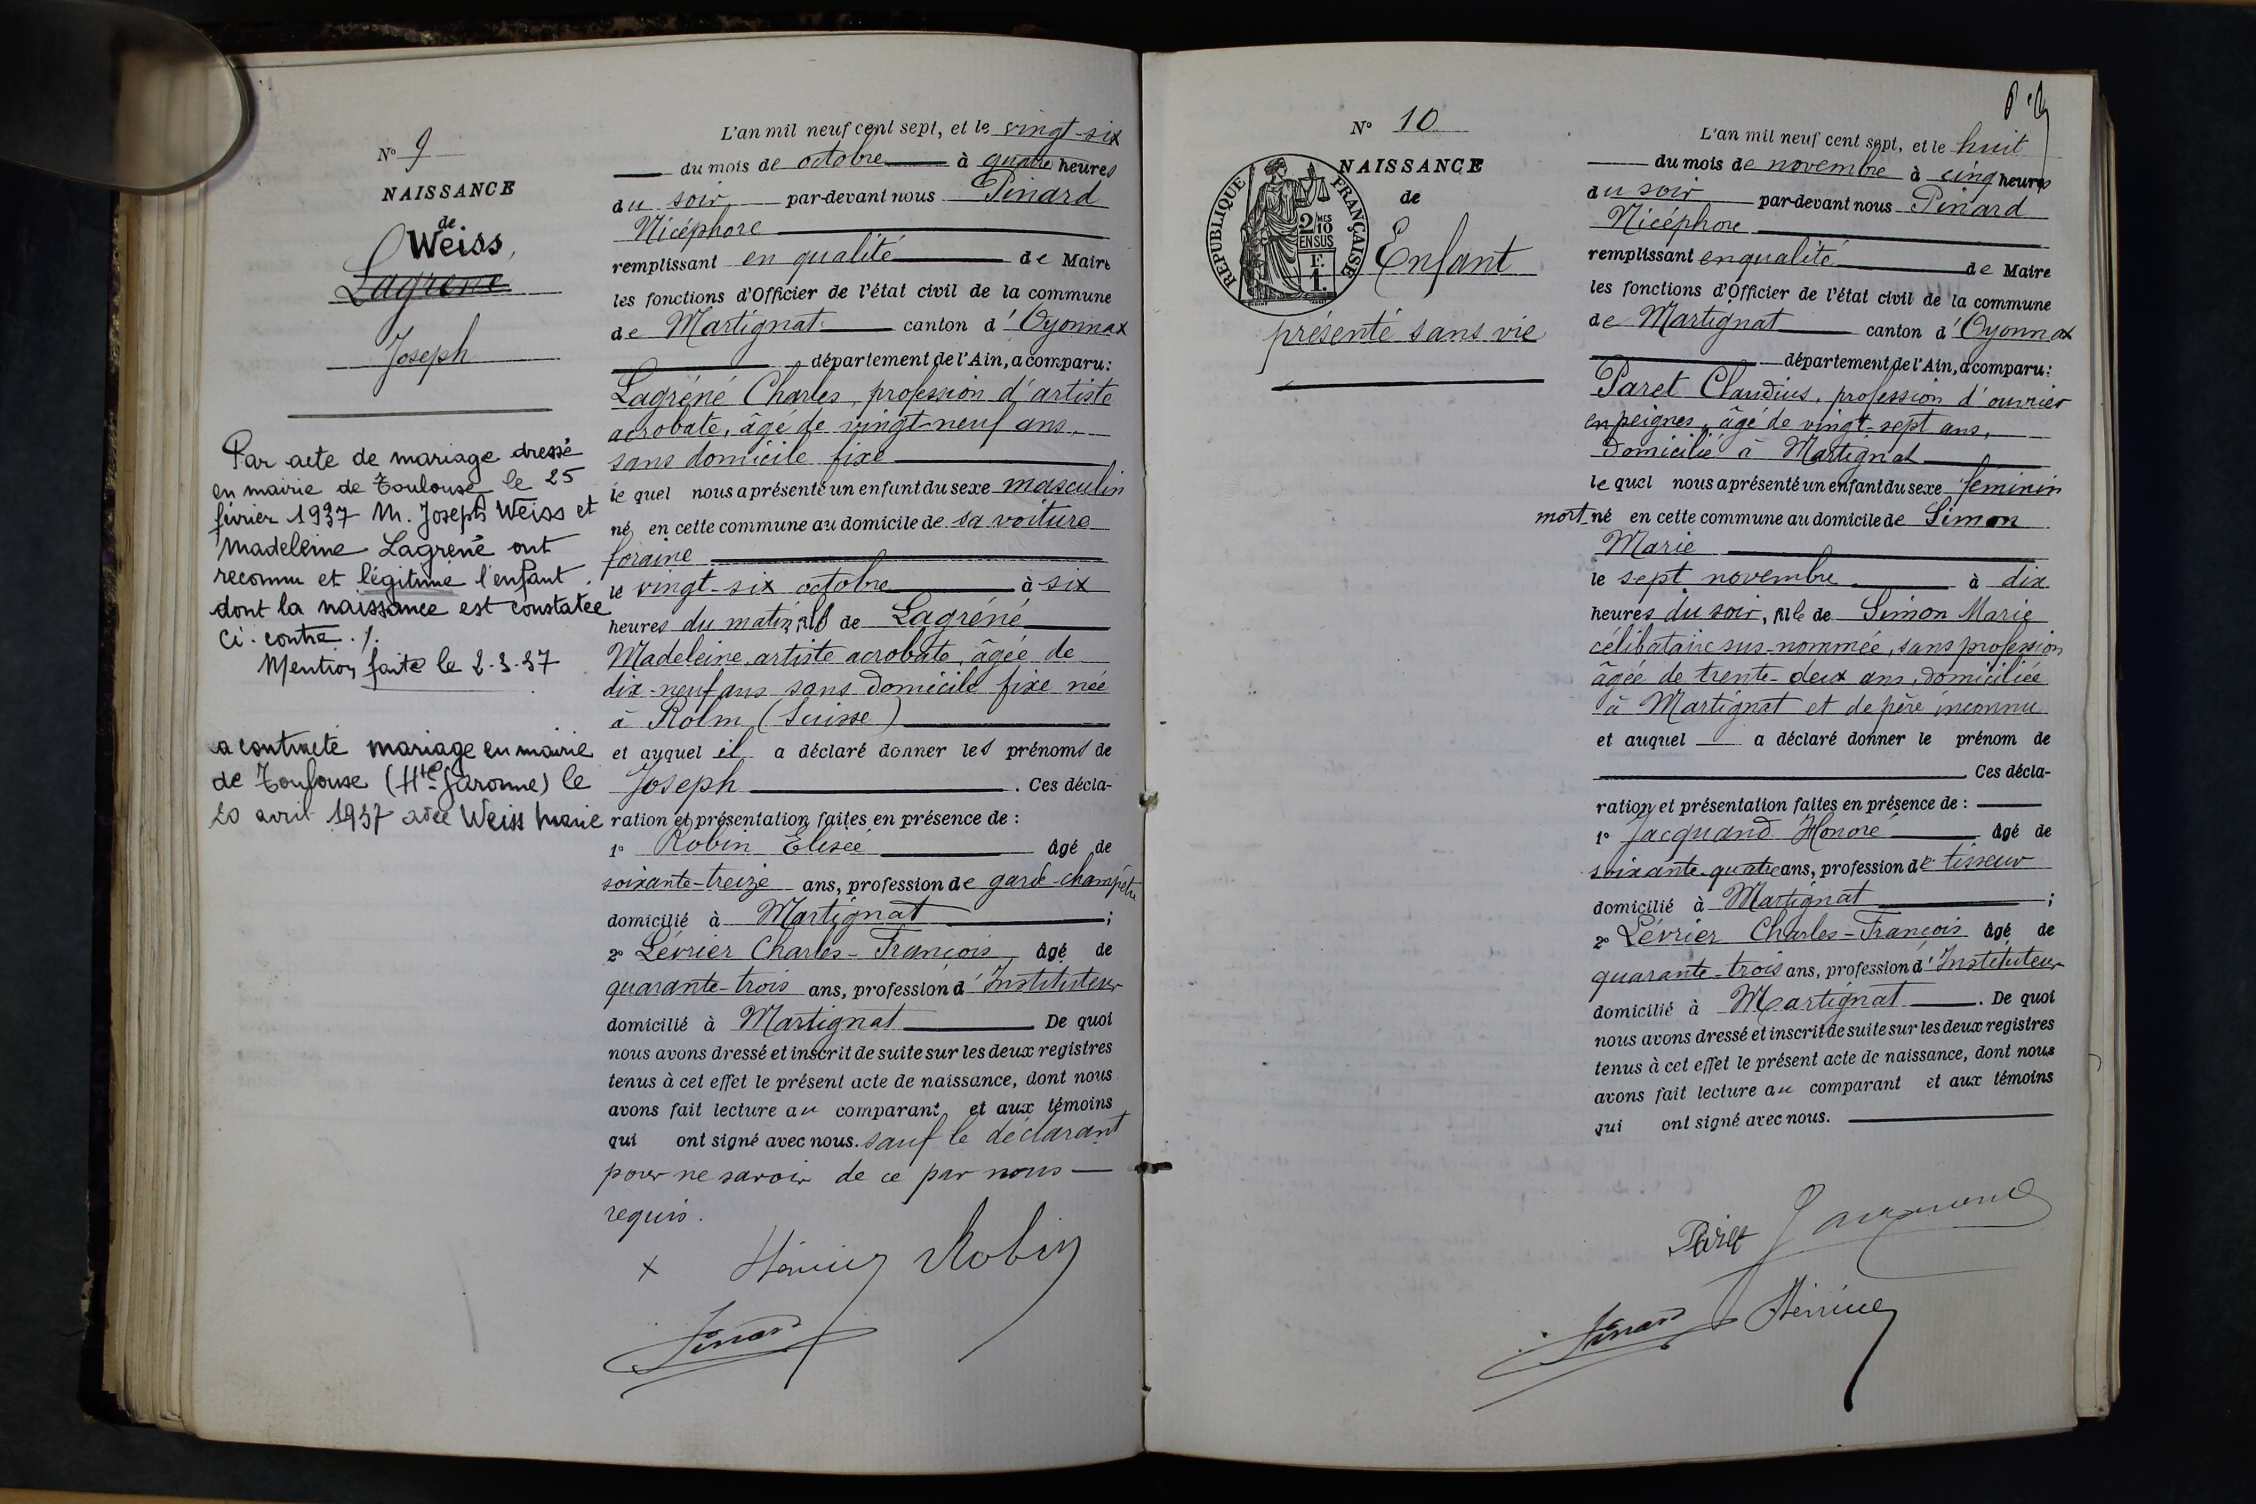 N° 9
NAISSANCE
de
Weiss,
Lagréné
Joseph
Par acte de mariage dressé
en mairie de Toulouse le 25
février 1937 M. Joseph Weiss et
Madeleine Lagréné ont
reconnu et légitimé l'enfant
dont la naissance est constatée
ci-contre ./.
Mention faite le 2.3.37
a contracté mariage en mairie
de Toulouse (Hte-Garonne) le
20 avril 1937 avec Weiss Marie
L'an mil neuf cent sept, et le vingt-six
du mois de octobre à quatre heures
du soir par-devant nous Pinard
Nicéphore
remplissant en qualité de Maire
les fonctions d'Officier de l'état civil de la commune
de Martignat canton d'Oyonnax
département de l'Ain, a comparu:
Lagréné Charles, profession d'artiste
acrobate, âgé de vingt-neuf ans,
sans domicile fixe
lequel nous a présenté un enfant du sexe masculin
né en cette commune au domicile de sa voiture
foraine
le vingt-six octobre à six
heures du matin, fils de Lagréné
Madeleine, artiste acrobate, âgée de
dix-neuf ans sans domicile fixe née
à Rolm (Suisse)
et auquel il a déclaré donner les prénoms de
Joseph . Ces décla-
ration et présentation faites en présence de :
1° Robin Elisée âgé de
soixante-treize ans, profession de garde-champêtre
domicilié à Martignat ;
2° Lévrier Charles-François âgé de
quarante-trois ans, profession d'Instituteur
domicilié à Martignat De quoi
nous avons dressé et inscrit de suite sur les deux registres
tenus à cet effet le présent acte de naissance, dont nous
avons fait lecture au comparant et aux témoins
qui ont signé avec nous. sauf le déclarant
pour ne savoir de ce par nous
requis.
x Robin
Pinard
N° 10
NAISSANCE
de
RÉPUBLIQUE FRANÇAISE
2 MES
10
EN SUS
F.
1.
Enfant
présenté sans vie
L'an mil neuf cent sept, et le huit
du mois de novembre à cinq heures
du soir par-devant nous Pinard
Nicéphore
remplissant en qualité de Maire
les fonctions d'Officier de l'état civil de la commune
de Martignat canton d'Oyonnax
département de l'Ain, a comparu:
Paret Claudius, profession d'ouvrier
en peignes, âgé de vingt-sept ans,
domicilié à Martignat
lequel nous a présenté un enfant du sexe féminin
mort né en cette commune au domicile de Simon
Marie
le sept novembre à dix
heures du soir, fille de Simon Marie
célibataire sus-nommée, sans profession
âgée de trente-deux ans, domiciliée
à Martignat et de père inconnu
et auquel a déclaré donner le prénom de
Ces décla-
ration et présentation faites en présence de :
1° Jacquand Honoré âgé de
soixante-quatre ans, profession de tisseur
domicilié à Martignat ;
2° Lévrier Charles-François âgé de
quarante-trois ans, profession d'Instituteur
domicilié à Martignat . De quoi
nous avons dressé et inscrit de suite sur les deux registres
tenus à cet effet le présent acte de naissance, dont nous
avons fait lecture au comparant et aux témoins
qui ont signé avec nous.
Paret Jacquand
Pinard